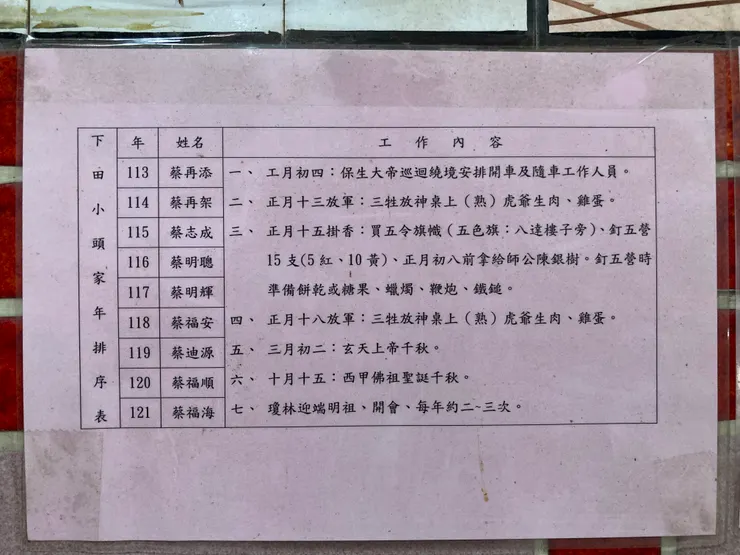 下田小頭家年排序表
年 姓名 工作內容
113 蔡再添
114 蔡再架
115 蔡志成
116 蔡明聰
117 蔡明輝
118 蔡福安
119 蔡迪源
120 蔡福順
121 蔡福海
一、 工月初四：保生大帝巡迴繞境安排開車及隨車工作人員。
二、 正月十三放軍：三牲放神桌上（熟）虎爺生肉、雞蛋。
三、 正月十五掛香：買五令旗幟（五色旗：八達樓子旁）、釘五營
15支(5紅、10黃)、正月初八前拿給師公陳銀樹。釘五營時
準備餅乾或糖果、蠟燭、鞭炮、鐵鎚。
四、 正月十八放軍：三牲放神桌上（熟）虎爺生肉、雞蛋。
五、 三月初二：玄天上帝千秋。
六、 十月十五：西甲佛祖聖誕千秋。
七、 瓊林迎端明祖、開會、每年約二~三次。